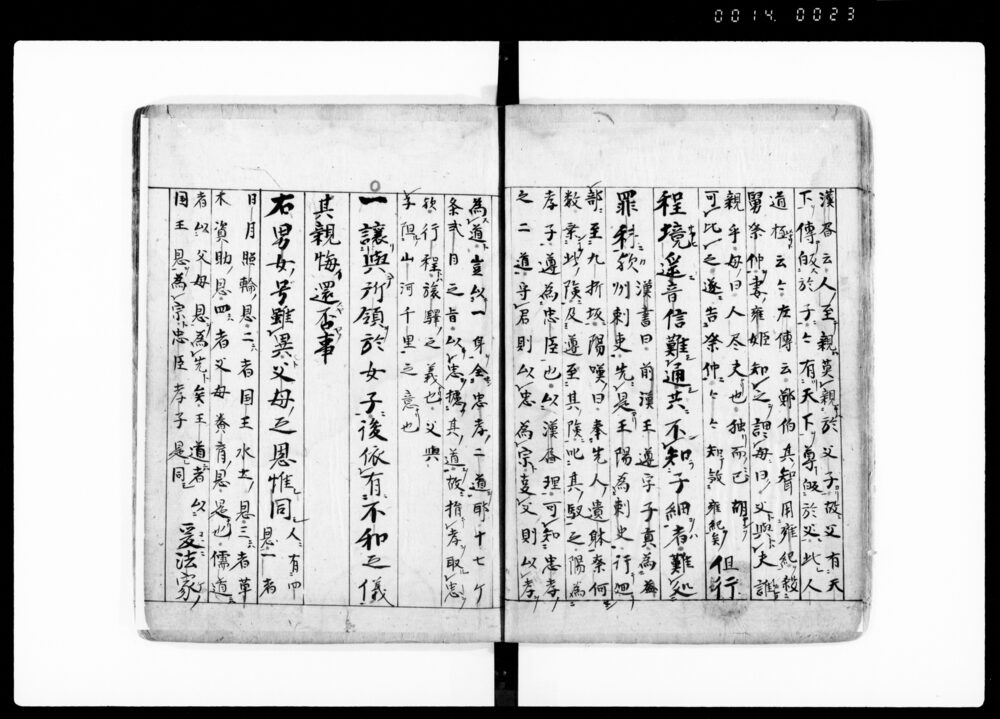 0014. 0023
漢書云人至親莫親於父子故父有天
下傳皈於子々有天下尊皈於父此人
道極云々左傳云鄭伯其聟用雍紀殺
舅祭仲妻雍姫知之謂母曰父與夫誰
親乎母曰人尽夫也独而已胡
可比之遂告祭仲々々知殺雍紀矣 但行
程境遥音信難通共不知子細者難処
罪科歟 漢書曰前漢王遵字子貢為益
州刺吏先是王陽為刺史行廻
部至九折坂陽嘆曰奉先人遺躰奈何
数乗此険及遵至其険叱其馭之陽為
孝子遵為忠臣也以漢書理可知忠孝
之二道守君則以忠為宗支父則以孝
為道豈以一身全忠孝二道耶十七ケ
条弐目之旨以忠據其道故指孝取忠
歟行程旅驛之義也父與
子阻山河千里之意也
一讓與所領於女子後依有不和之儀
其親悔還否事
右男女号雖異父母之恩惟同 人有四
恩一者
日月照輪恩二者国王水土恩三者草
木資助恩四者父母養育恩是也儒道
者以父母恩為先矣王道者以
国王恩為宗忠臣孝子是同 爰法家